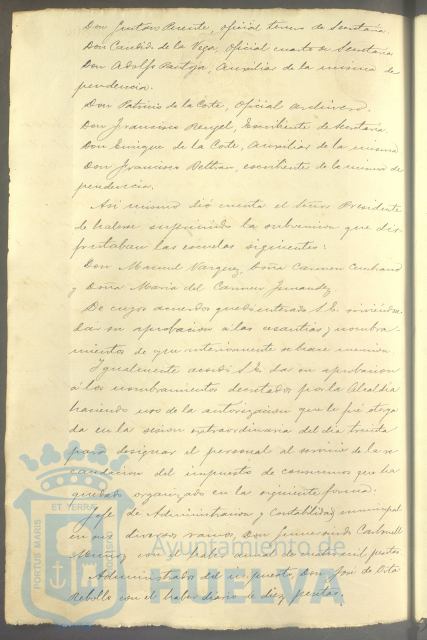 Don Gustavo Puente, oficial tercero de Secretaría.
Don Candido de la Vega, Oficial cuarto de Secretaría
Don Adolfo Pantoja, Auxiliar de la misma de
pendencia.
Don Patricio de la Corte, Oficial archivero.
Don Francisco Rengel, Escribiente de Secretaría.
Don Enrique de la Corte, Auxiliar de la misma
Don Francisco Beltran, escribiente de la misma de
pendencia.
Asi mismo dió cuenta el Señor Presidente
de haber suprimido la subvencion que dis
frutaban las escuelas siguientes:
Don Manuel Vazquez, Doña Carmen
y Doña Maria del Carmen Fernandez
De cuyos acuerdos quedó enterado S.E. sirvién
dar su aprobacion a las cesantias y nombra-
mientos de que anteriormente se hace mencion.
Igualmente acordó S.E. dar su aprobacion
á los nombramientos decretados por la Alcaldia
haciendo uso de la autorizacion que le fué otorga
da en la sesion extraordinaria del dia treinta
para designar el personal al servicio de la re
caudacion del impuesto de consumos que ha
quedado organizado en la siguiente forma.
Jefe de Administracion y Contabilidad municipal
en sus diversos ramos, Don Carbonell
con el haber anual de pesetas
Administrador del impuesto, Don José de Orta
Rebollo con el haber diario de diez pesetas.
PORTUS MARIS
ET TERRAE
Ayuntamiento de
HUELVA